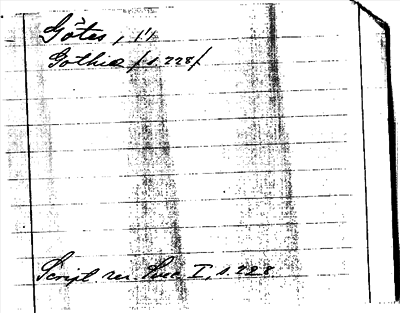 Götar, 1/1
Gothia /s. 228/
Script rer Suec I, s. 228